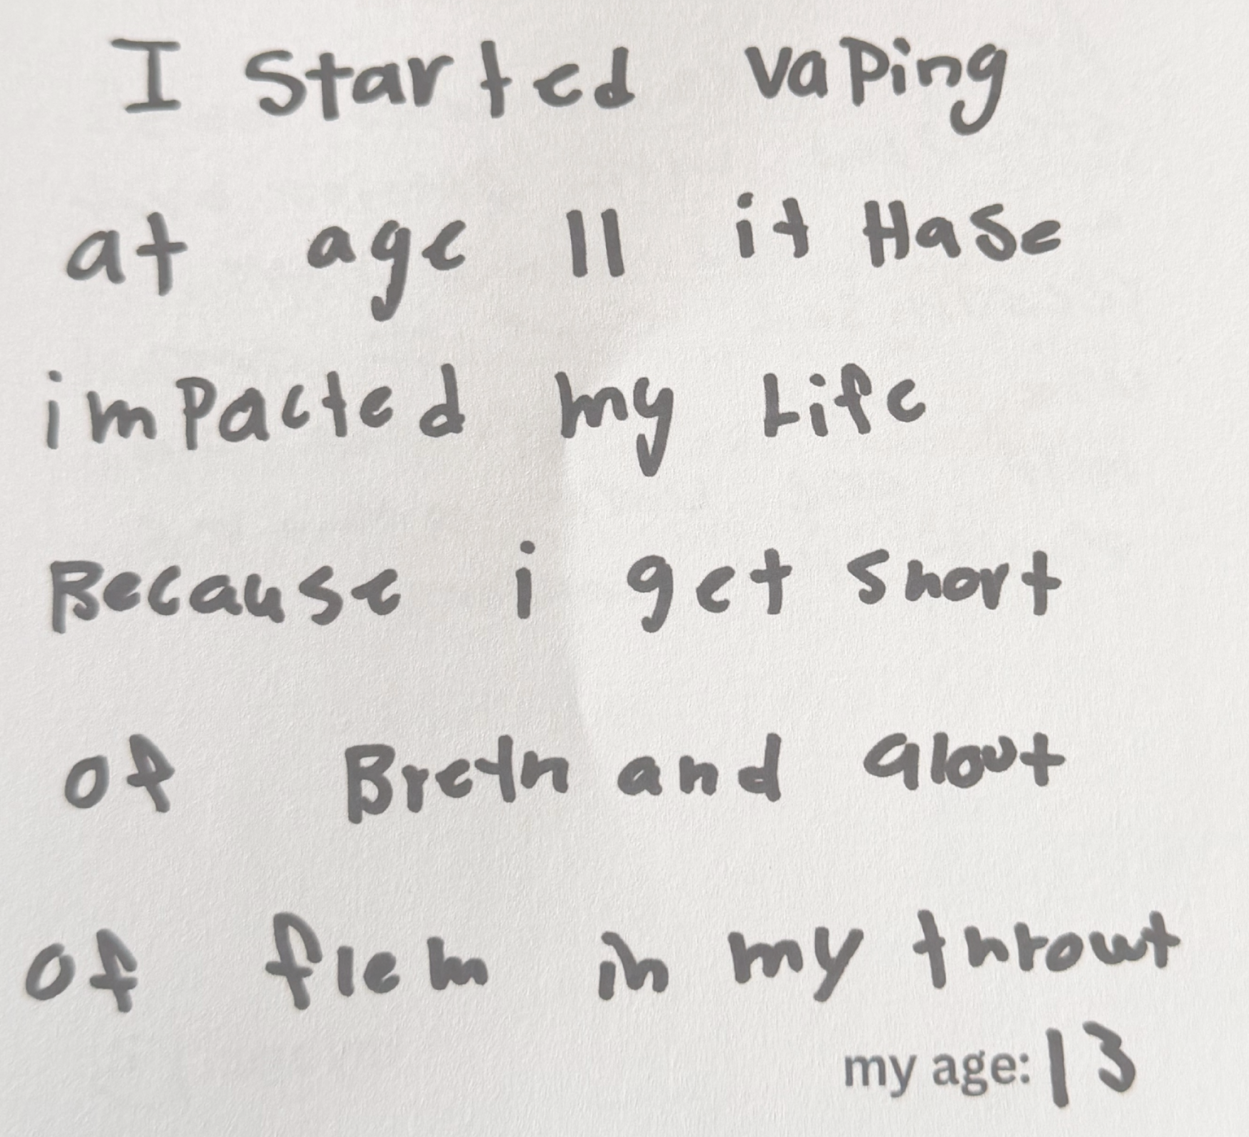 I Started vaPing
at age 11 it Hase
imPacted my Life
Because i get short
of Breth and alout
of flem in my throwt
my age: 13